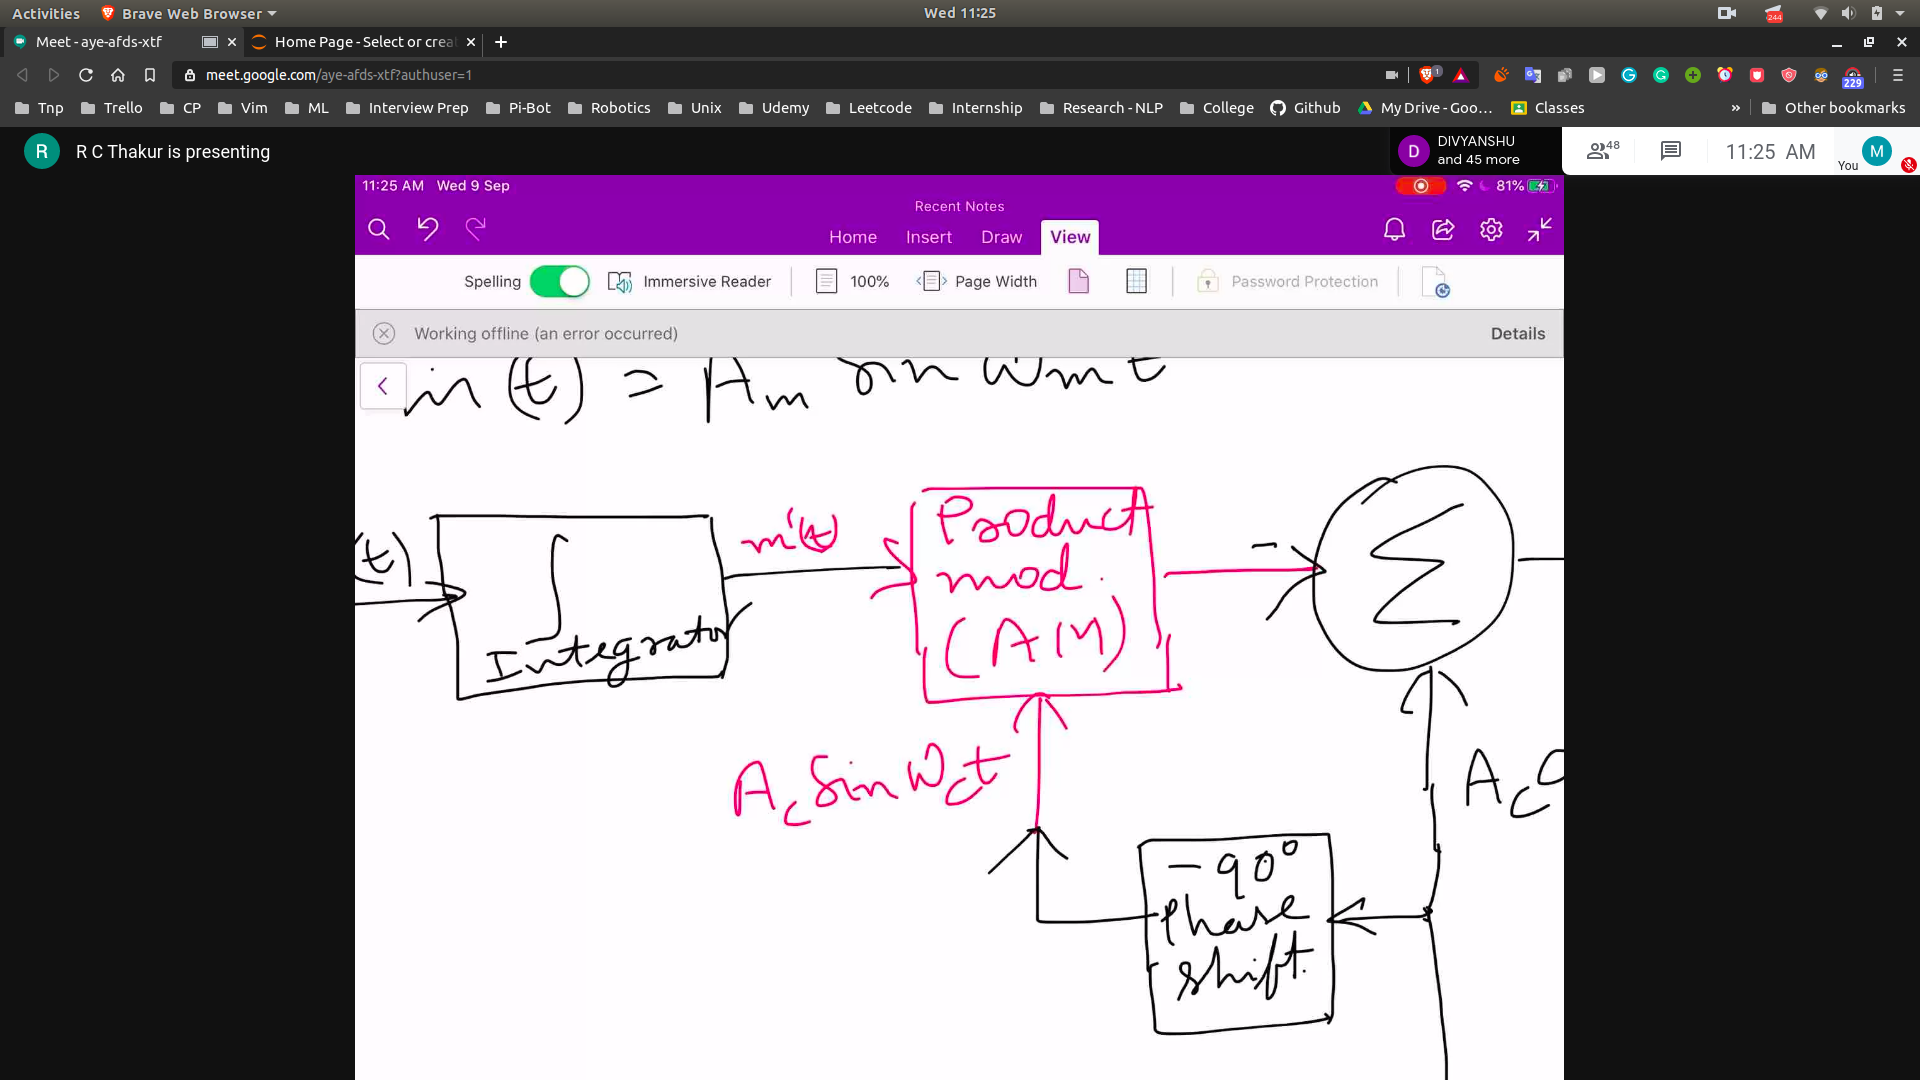 Activities Brave Web Browser Wed 11:25 244
Meet - aye-afds-xtf Home Page - Select or crea
meet.google.com/aye-afds-xtf?authuser=1 1 229
Tnp Trello CP Vim ML Interview Prep Pi-Bot Robotics Unix Udemy Leetcode Internship Research - NLP College Github My Drive - Goo... Classes » Other bookmarks
R R C Thakur is presenting D DIVYANSHU and 45 more 48 11:25 AM You M
11:25 AM Wed 9 Sep 81%
Recent Notes
Home Insert Draw View
Spelling Immersive Reader 100% Page Width Password Protection
Working offline (an error occurred) Details
m(t) = Am Sin Wmt
(t) ∫ Integrator
m'(t)
Product
mod.
(AM)
- Σ
Ac Sin Wct
Ac C
-90°
Phase
shift.